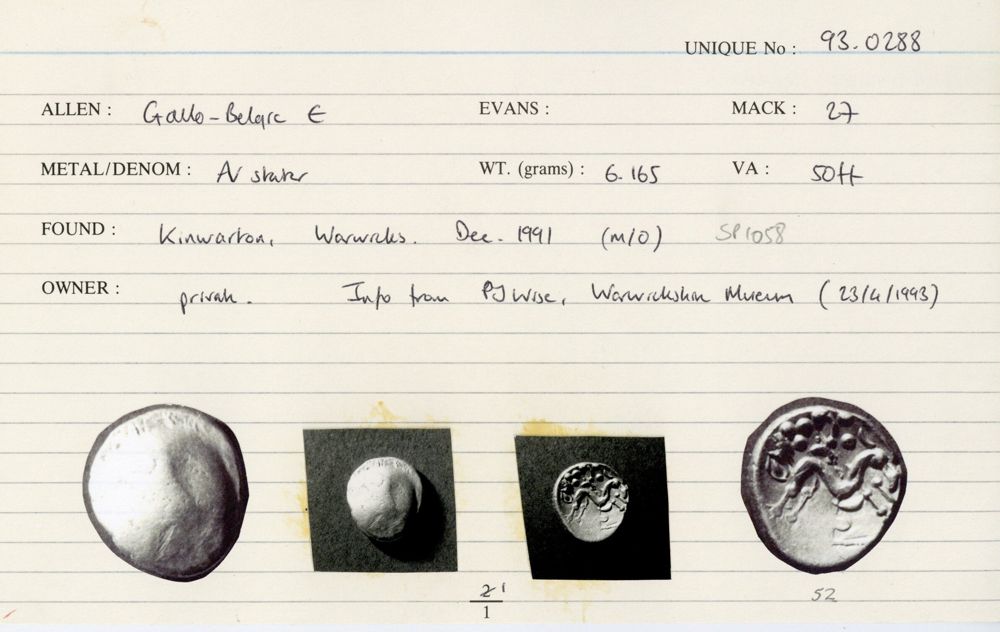 UNIQUE No : 93.0288
ALLEN : Gallo-Belgic E EVANS : MACK : 27
METAL/DENOM : AV stater WT. (grams) : 6.165 VA : 50ff
FOUND : Kinwarton, Warwicks. Dec. 1991 (M/D) SP1058
OWNER : private. Info from PJ Wise, Warwickshire Museum (23/4/1993)
2 1
1
52